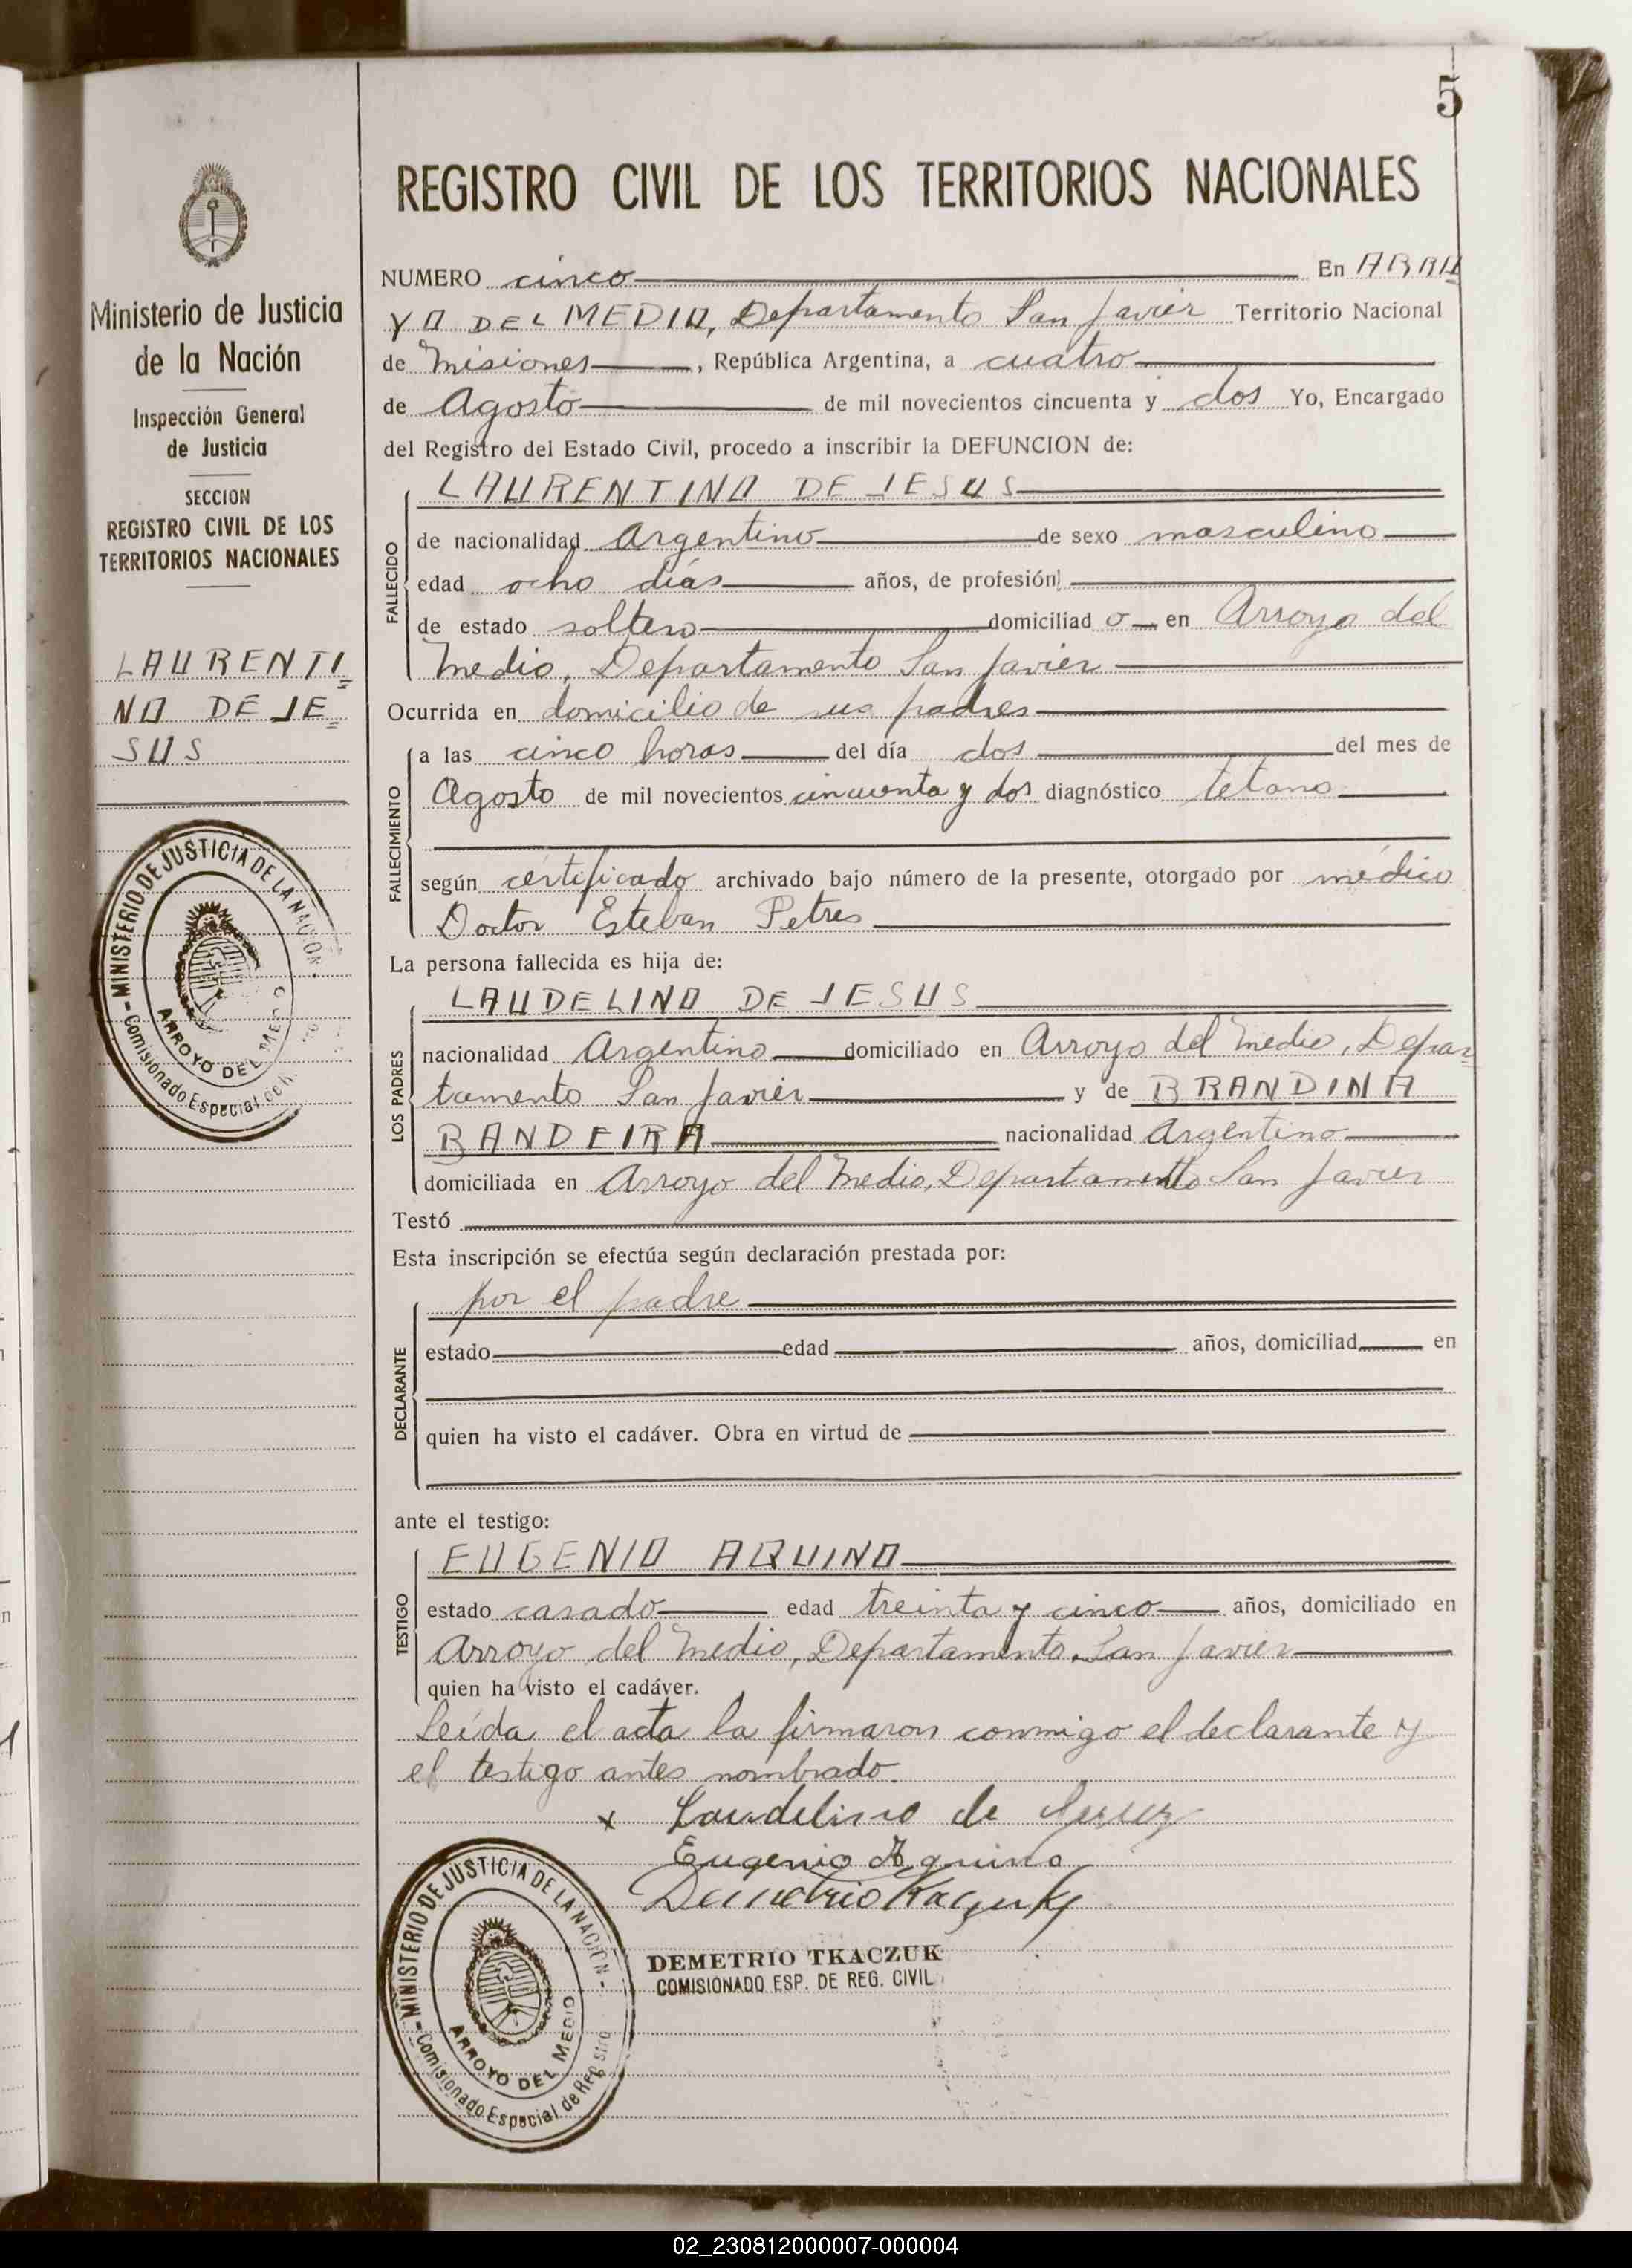 5
Ministerio de Justicia
de la Nación
Inspección General
de Justicia
SECCION
REGISTRO CIVIL DE LOS
TERRITORIOS NACIONALES
LAURENTI
NO DE JE
SUS
- MINISTERIO DE JUSTICIA DE LA NACION -
ARROYO DEL MEDIO
Comisionado Especial de
REGISTRO CIVIL DE LOS TERRITORIOS NACIONALES
NUMERO cinco En ARRO
YO DEL MEDIO, Departamento San Javier Territorio Nacional
de Misiones, República Argentina, a cuatro
de Agosto de mil novecientos cincuenta y dos Yo, Encargado
del Registro del Estado Civil, procedo a inscribir la DEFUNCION de:
LAURENTINO DE JESUS
FALLECIDO
de nacionalidad Argentino de sexo masculino
edad ocho días años, de profesión
de estado soltero domiciliad o en Arroyo del
Medio, Departamento San Javier
Ocurrida en domicilio de sus padres
FALLECIMIENTO
a las cinco horas del día dos del mes de
Agosto de mil novecientos cincuenta y dos diagnóstico tetano
según certificado archivado bajo número de la presente, otorgado por médico
Doctor Esteban Petres
La persona fallecida es hija de:
LAUDELINO DE JESUS
LOS PADRES
nacionalidad Argentino domiciliado en Arroyo del Medio, Depar
tamento San Javier y de BRANDINA
BANDEIRA nacionalidad Argentino
domiciliada en Arroyo del Medio, Departamento San Javier
Testó
Esta inscripción se efectúa según declaración prestada por:
por el padre
DECLARANTE
estado edad años, domiciliad en
quien ha visto el cadáver. Obra en virtud de
ante el testigo:
EUGENIO AQUINO
TESTIGO
estado casado edad treinta y cinco años, domiciliado en
Arroyo del Medio, Departamento San Javier
quien ha visto el cadáver.
Leída el acta la firmaron conmigo el declarante y
el testigo antes nombrado.
x Laudelino de
Eugenio Aquino
Demetrio
DEMETRIO TKACZUK
COMISIONADO ESP. DE REG. CIVIL
- MINISTERIO DE JUSTICIA DE LA NACION -
ARROYO DEL MEDIO
Comisionado Especial de Registro
02_230812000007-000004